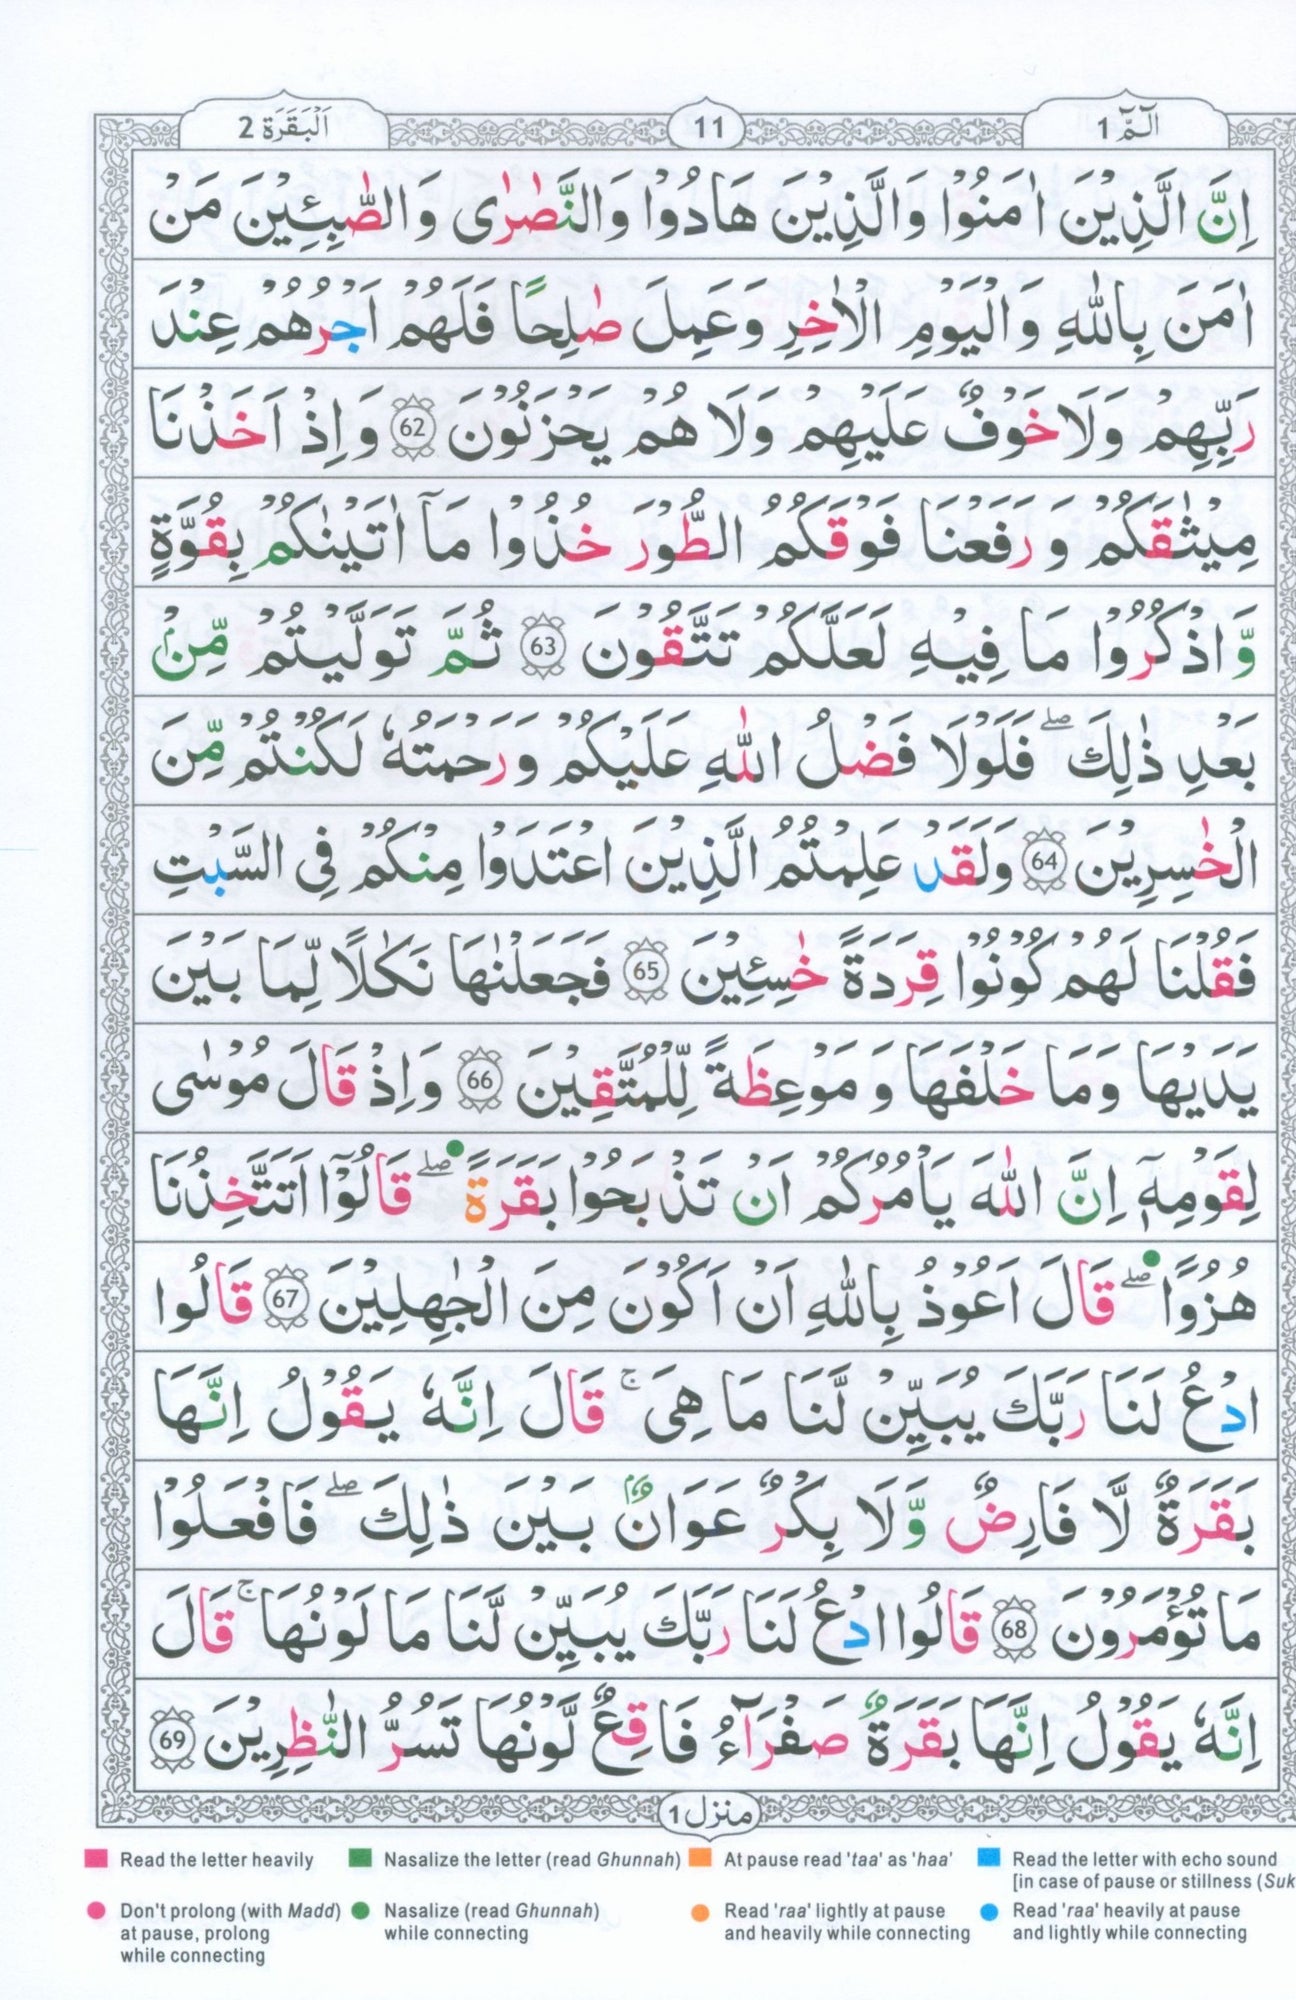 الٓمّٓ 1
11
اَلْبَقَرَة 2
اِنَّ الَّذِيْنَ اٰمَنُوْا وَالَّذِيْنَ هَادُوْا وَالنَّصٰرٰى وَالصّٰبِـِٕيْنَ مَنْ
اٰمَنَ بِاللّٰهِ وَالْيَوْمِ الْاٰخِرِ وَعَمِلَ صٰلِحًا فَلَهُمْ اَجْرُهُمْ عِنْدَ
رَبِّهِمْ وَلَا خَوْفٌ عَلَيْهِمْ وَلَا هُمْ يَحْزَنُوْنَ 62 وَاِذْ اَخَذْنَا
مِيْثٰقَكُمْ وَرَفَعْنَا فَوْقَكُمُ الطُّوْرَ خُذُوْا مَآ اٰتَيْنٰكُمْ بِقُوَّةٍ
وَّاذْكُرُوْا مَا فِيْهِ لَعَلَّكُمْ تَتَّقُوْنَ 63 ثُمَّ تَوَلَّيْتُمْ مِّنْۢ
بَعْدِ ذٰلِكَ ۖ فَلَوْلَا فَضْلُ اللّٰهِ عَلَيْكُمْ وَرَحْمَتُهٗ لَكُنْتُمْ مِّنَ
الْخٰسِرِيْنَ 64 وَلَقَدْ عَلِمْتُمُ الَّذِيْنَ اعْتَدَوْا مِنْكُمْ فِى السَّبْتِ
فَقُلْنَا لَهُمْ كُوْنُوْا قِرَدَةً خٰسِـِٕيْنَ 65 فَجَعَلْنٰهَا نَكَالًا لِّمَا بَيْنَ
يَدَيْهَا وَمَا خَلْفَهَا وَمَوْعِظَةً لِّلْمُتَّقِيْنَ 66 وَاِذْ قَالَ مُوْسٰى
لِقَوْمِهٖٓ اِنَّ اللّٰهَ يَاْمُرُكُمْ اَنْ تَذْبَحُوْا بَقَرَةً ۖ قَالُوْٓا اَتَتَّخِذُنَا
هُزُوًا ۖ قَالَ اَعُوْذُ بِاللّٰهِ اَنْ اَكُوْنَ مِنَ الْجٰهِلِيْنَ 67 قَالُوا
ادْعُ لَنَا رَبَّكَ يُبَيِّنْ لَّنَا مَا هِىَ ۚ قَالَ اِنَّهٗ يَقُوْلُ اِنَّهَا
بَقَرَةٌ لَّا فَارِضٌ وَّلَا بِكْرٌ عَوَانٌۢ بَيْنَ ذٰلِكَ ۖ فَافْعَلُوْا
مَا تُؤْمَرُوْنَ 68 قَالُوا ادْعُ لَنَا رَبَّكَ يُبَيِّنْ لَّنَا مَا لَوْنُهَا ۚ قَالَ
اِنَّهٗ يَقُوْلُ اِنَّهَا بَقَرَةٌۢ صَفْرَآءُ فَاقِعٌ لَّوْنُهَا تَسُرُّ النّٰظِرِيْنَ 69
منزل 1
Read the letter heavily
Nasalize the letter (read Ghunnah)
At pause read 'taa' as 'haa'
Read the letter with echo sound
[in case of pause or stillness (Suk
Don't prolong (with Madd)
at pause, prolong
while connecting
Nasalize (read Ghunnah)
while connecting
Read 'raa' lightly at pause
and heavily while connecting
Read 'raa' heavily at pause
and lightly while connecting